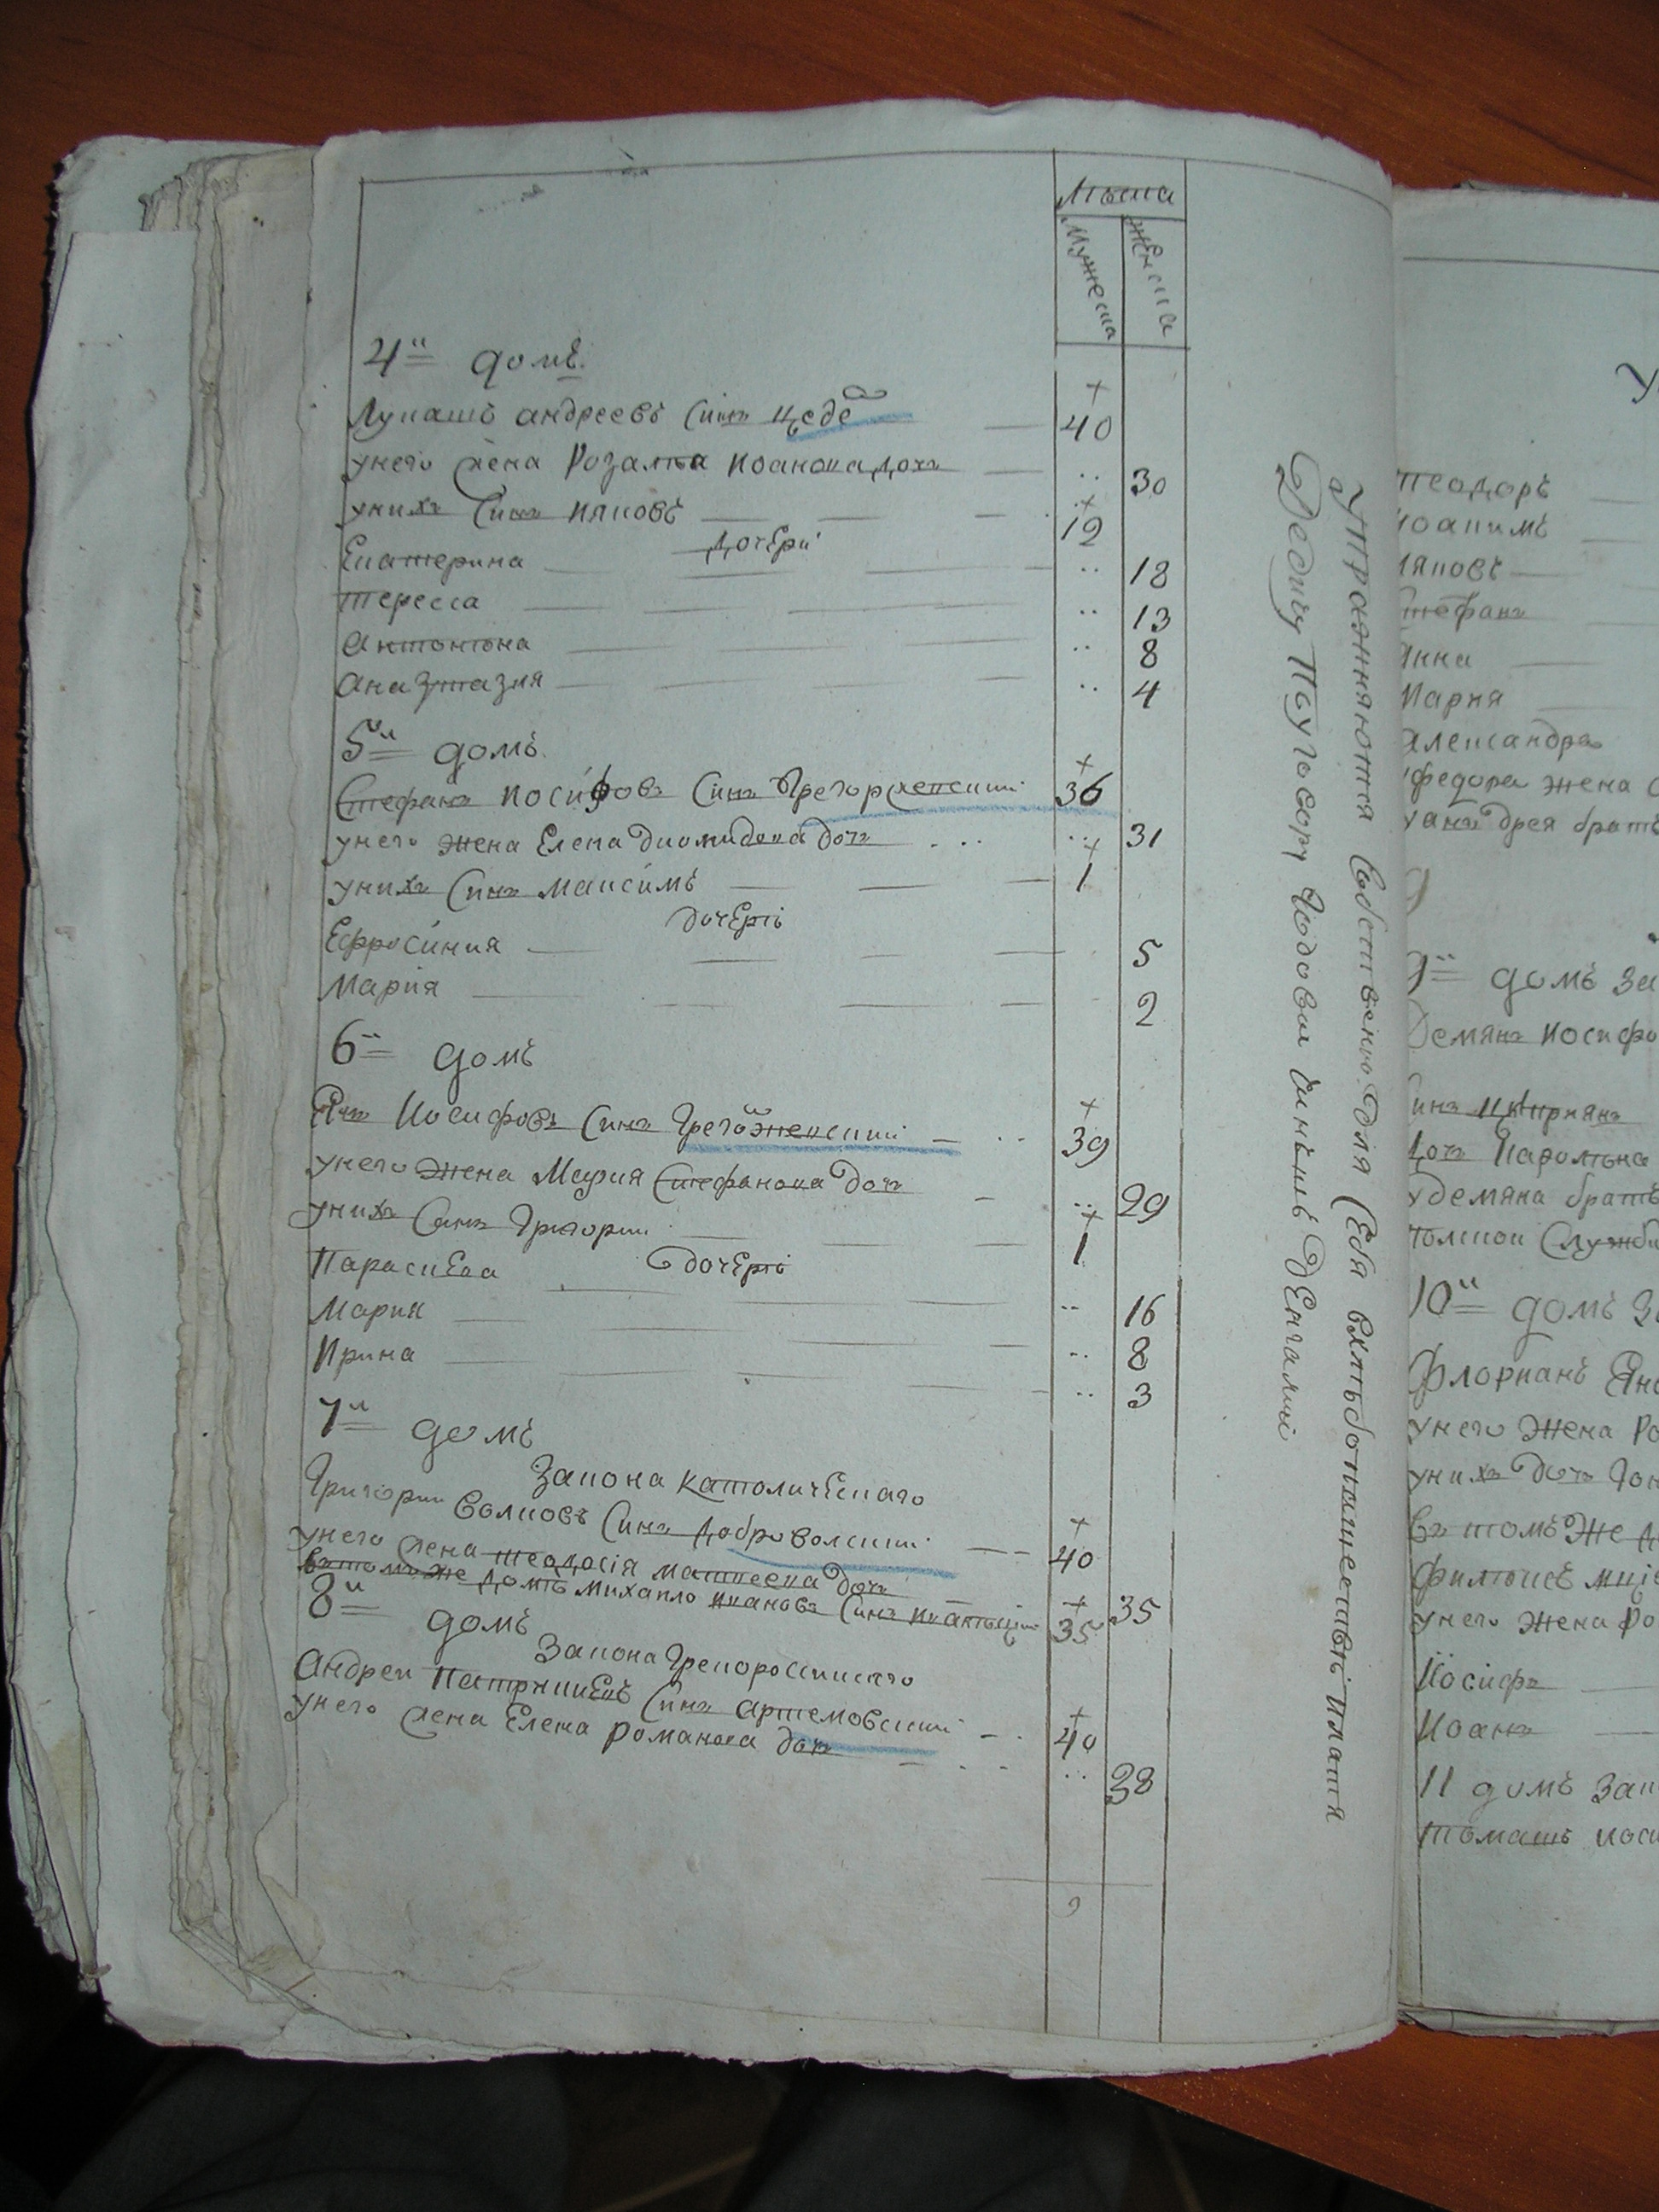 Лѣта
Мужеска
Женска
4й домъ
Лукашъ андреевъ Синъ Цедро
40
унего жена Розалѣа иоанова дочъ
30
унихъ Синъ ияковъ
12
дочери
Екатерина
18
тересса
13
антонѣна
8
аназтазия
4
5й домъ
Стефанъ иосифовъ Синъ Грегоржевский
36
унего жена Елена Диомидова дочъ
31
унихъ Синъ максимъ
1
дочерѣ
Ефросиния
5
мария
2
6й домъ
Янъ Иосифовъ Синъ Грегоржевский
39
унего жена Мария Стефанова дочъ
29
унихъ Синъ Григорий
1
дочерѣ
Параскева
16
Мария
8
Ирина
3
7й домъ
Закона Католическаго
Григорий Волковъ Синъ Добровольский
40
унего жена теодосія матвеева дочъ
35
втомъ же домѣ михаило ивановъ Синъ
35
8й домъ
Закона Грекоросийскаго
Андрей Патрикиевъ Синъ артемовский
40
унего жена Елена романова дочъ
38
Упражняются Собственно для Себя хлѣбопашествѣ Платя
Дедичу Поуговору Годовой Чиншъ Денгами
теодоръ
иоакимъ
ияковъ
стефанъ
анна
Мария
александра
федора жена
домъ За
Демянъ иосифо
Синъ Циприянъ
дочъ Каролѣна
удемяна братъ
10й домъ З
Флориянъ Яно
унего жена Ро
унихъ дочъ
Въ томъ же д
унего жена Ро
Иосифъ
Иоанъ
11 домъ Зак
томашъ иоси